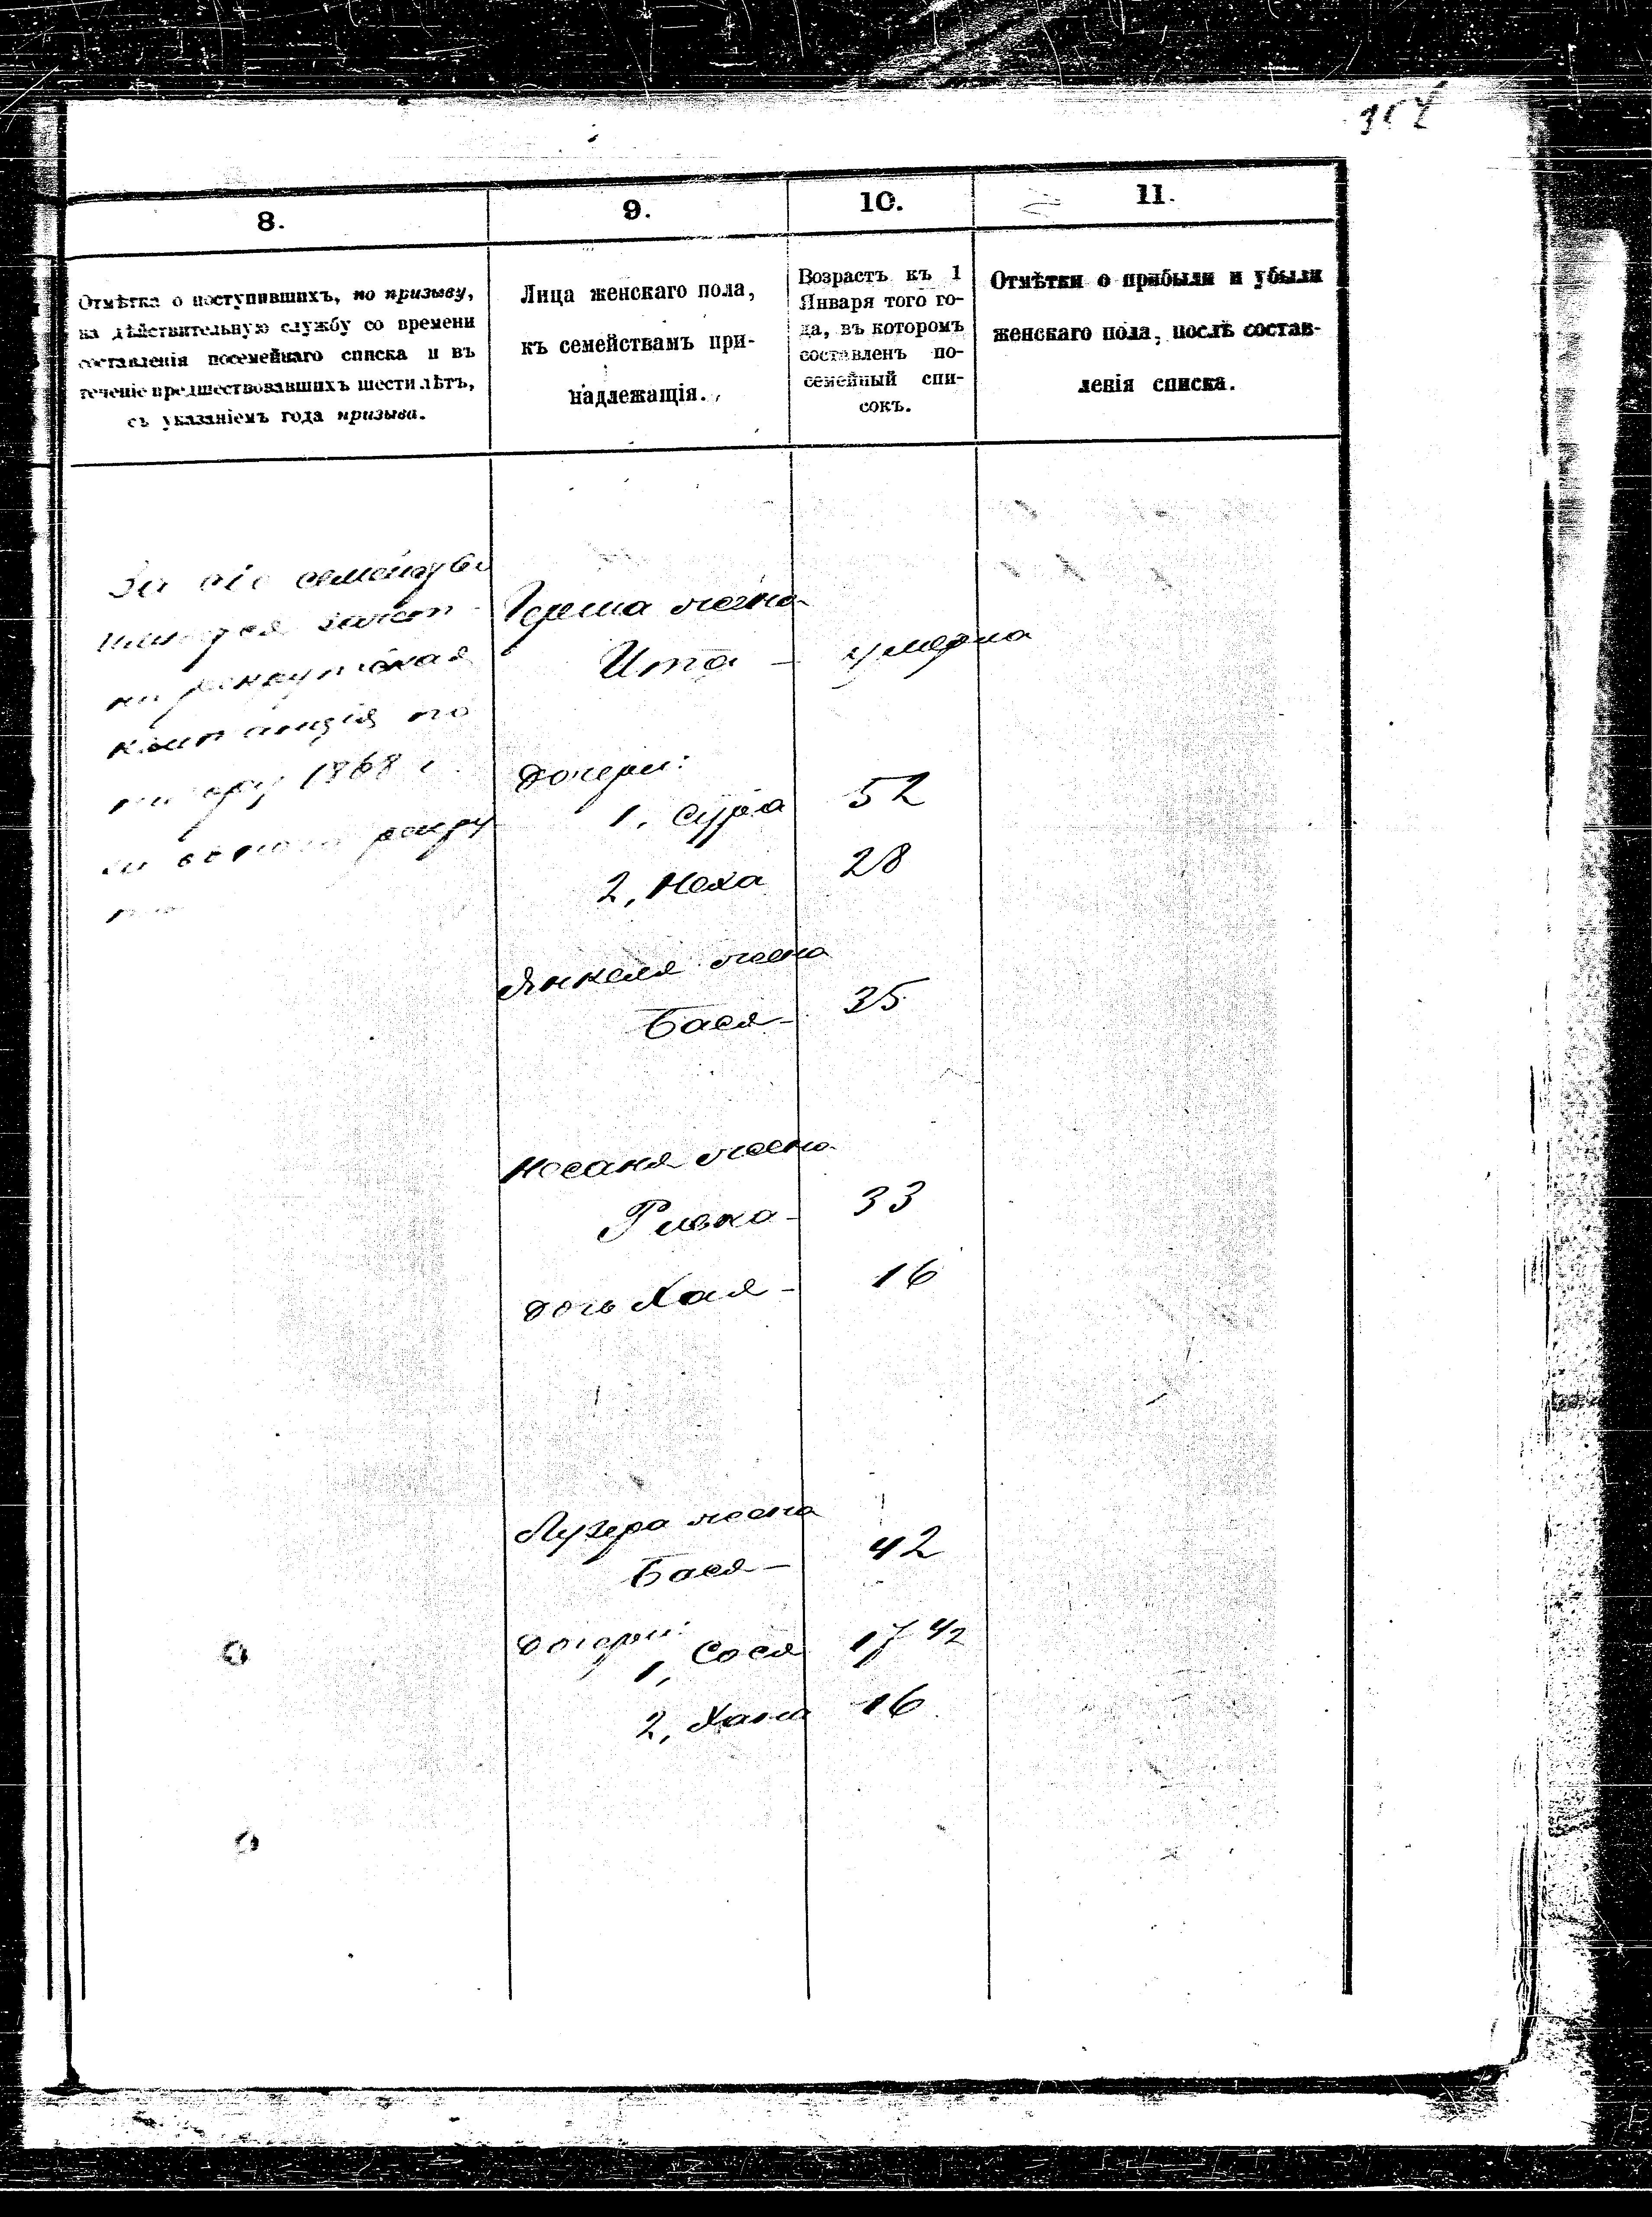 8.
9.
10.
11.
Отмѣтка о поступившихъ, по призыву,
на дѣйствительную службу со времени
составленія посемейнаго списка и въ
теченіе предшествовавшихъ шести лѣтъ,
съ указаніемъ года призыва.
Лица женскаго пола,
къ семействамъ при-
надлежащія.
Возрастъ къ 1
Января того го-
да, въ которомъ
составленъ по-
семейный спи-
сокъ.
Отмѣтки о прибыли и убыли
женскаго пола, послѣ состав-
ленія списка.
За сіе семейство
рекрутская
квитанція по
1868 г.
Герша жена
Ита - умерла
дочери:
1, Сура 52
2, Неха 28
Янкеля жена
Бася - 35
Носаня жена
Ривка - 33
дочь Хая - 16
Лузера жена
Бася - 42
дочери:
1, Сося 17 1/2
2, Хана 16